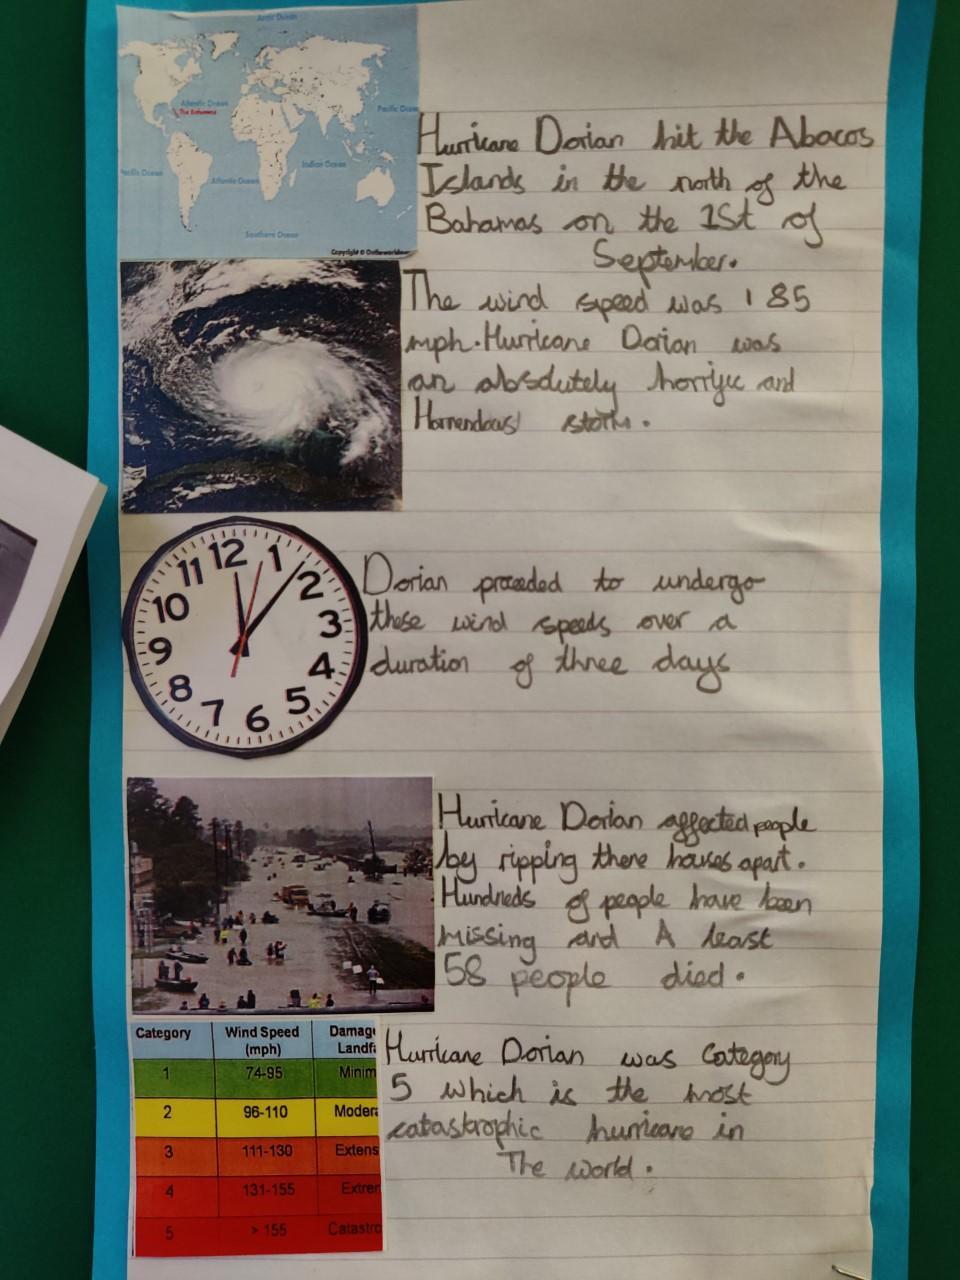 Arctic Ocean
Atlantic Ocean
Pacific Ocean
The Bahamas
Pacific Ocean
Indian Ocean
Atlantic Ocean
Southern Ocean
Hurricane Dorian hit the Abacos
Islands in the north of the
Bahamas on the 1St of
September.
The wind speed was 185
mph. Hurricane Dorian was
an absolutely horrific and
Horrendous storm.
12
1
2
3
4
5
6
7
8
9
10
11
Dorian proceeded to undergo
these wind speeds over a
duration of three days
Hurricane Dorian affected people
by ripping there houses apart.
Hundreds of people have been
missing and A least
58 people died.
Category Wind Speed (mph) Damage Landfa
1 74-95 Minim
2 96-110 Modera
3 111-130 Extens
4 131-155 Extrem
5 > 155 Catastro
Hurricane Dorian was Category
5 which is the most
catastrophic hurricane in
The world.